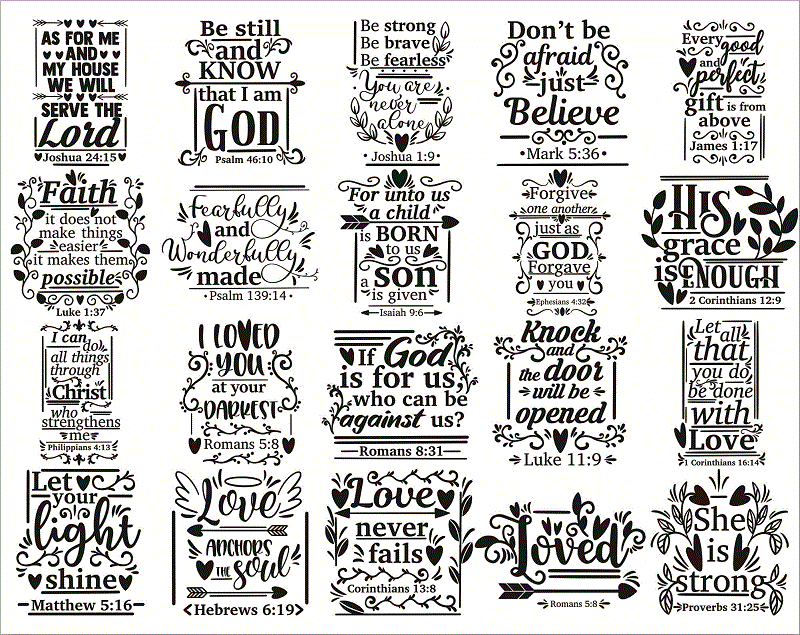 AS FOR ME
AND
MY HOUSE
WE WILL
SERVE THE
Lord
Joshua 24:15
Be still
and
KNOW
that I am
GOD
Psalm 46:10
Be strong
Be brave
Be fearless
You are
never
alone
Joshua 1:9
Don't be
afraid
just
Believe
Mark 5:36
Every good
and
perfect
gift is from
above
James 1:17
Faith
it does not
make things
easier
it makes them
possible
Luke 1:37
Fearfully
and
Wonderfully
made
Psalm 139:14
For unto us
a child
is BORN
to us
a son
is given
Isaiah 9:6
Forgive
one another
just as
GOD
Forgave
you
Ephesians 4:32
HIS
grace
is ENOUGH
2 Corinthians 12:9
I can
do
all things
through
Christ
who
strengthens
me
Philippians 4:13
I LOVED
YOU
at your
DARKEST
Romans 5:8
If God
is for us,
who can be
against us?
Romans 8:31
Knock
and
the door
will be
opened
Luke 11:9
Let all
that
you do
be done
with
Love
1 Corinthians 16:14
Let
your
light
shine
Matthew 5:16
Love
ANCHORS
THE soul
Hebrews 6:19
Love
never
fails
Corinthians 13:8
Loved
Romans 5:8
She
is
strong
Proverbs 31:25